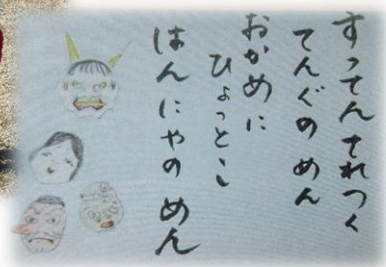 すってん てれつく
てんぐの めん
おかめに
ひょっとこ
はんにゃの めん